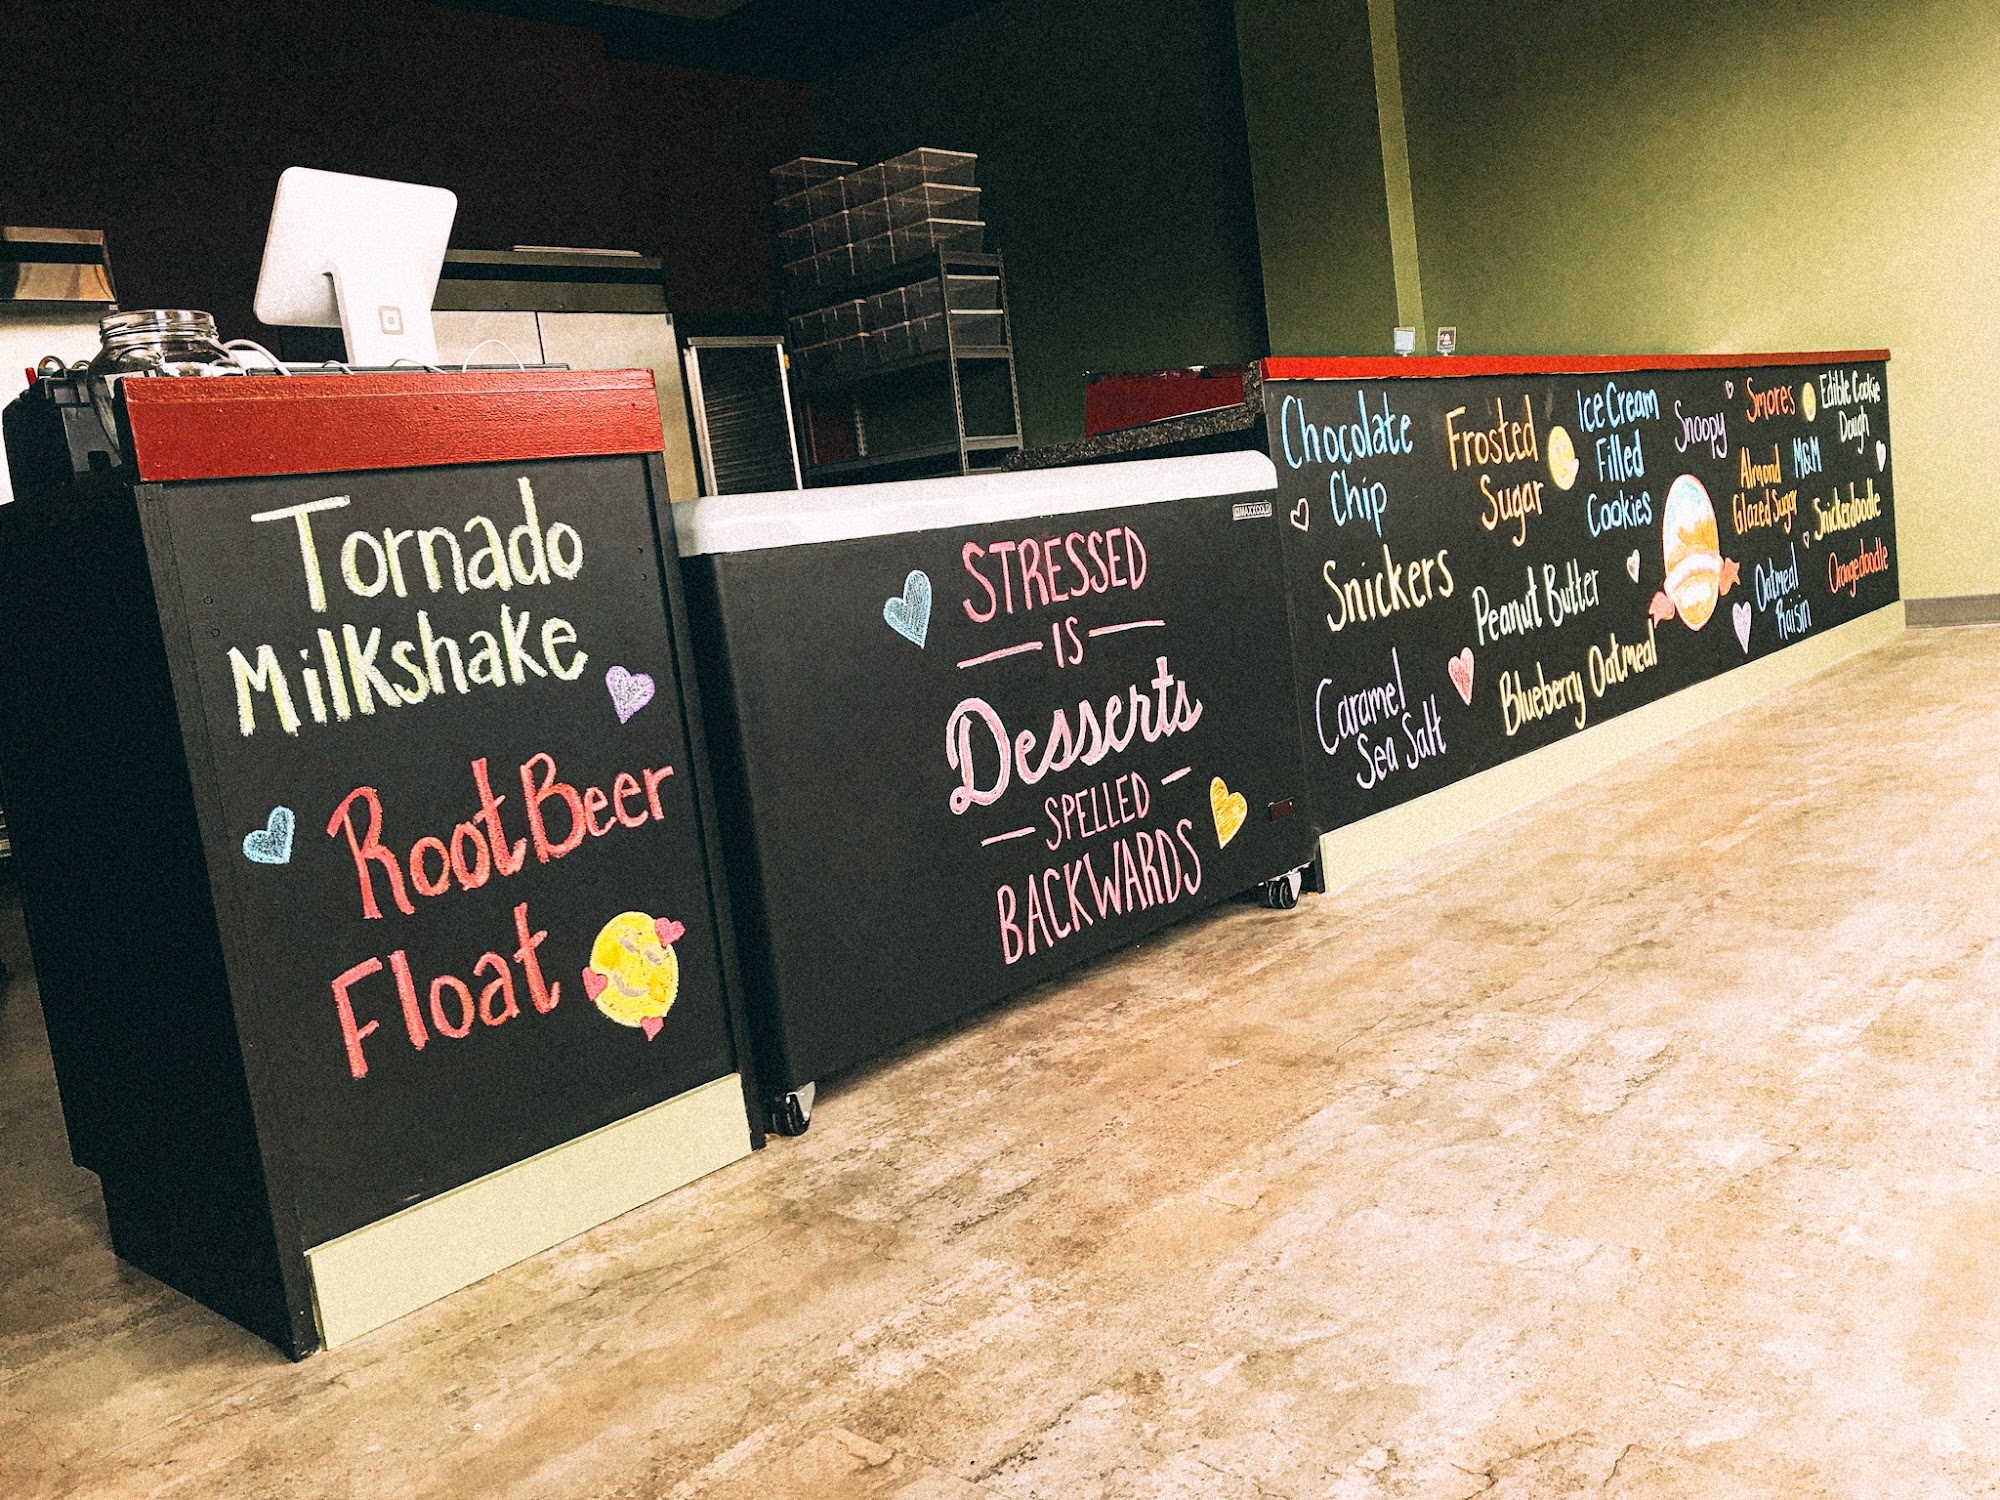 Tornado
Milkshake
Root Beer
Float
STRESSED
IS
Desserts
SPELLED
BACKWARDS
MAXXCOLD
Chocolate
Chip
Snickers
Caramel
Sea Salt
Frosted
Sugar
Peanut Butter
Blueberry Oatmeal
Ice Cream
Filled
Cookies
Snoopy
Smores
Almond
Glazed Sugar
M&M
Oatmeal
Raisin
Edible Cookie
Dough
Snickerdoodle
Orangedoodle